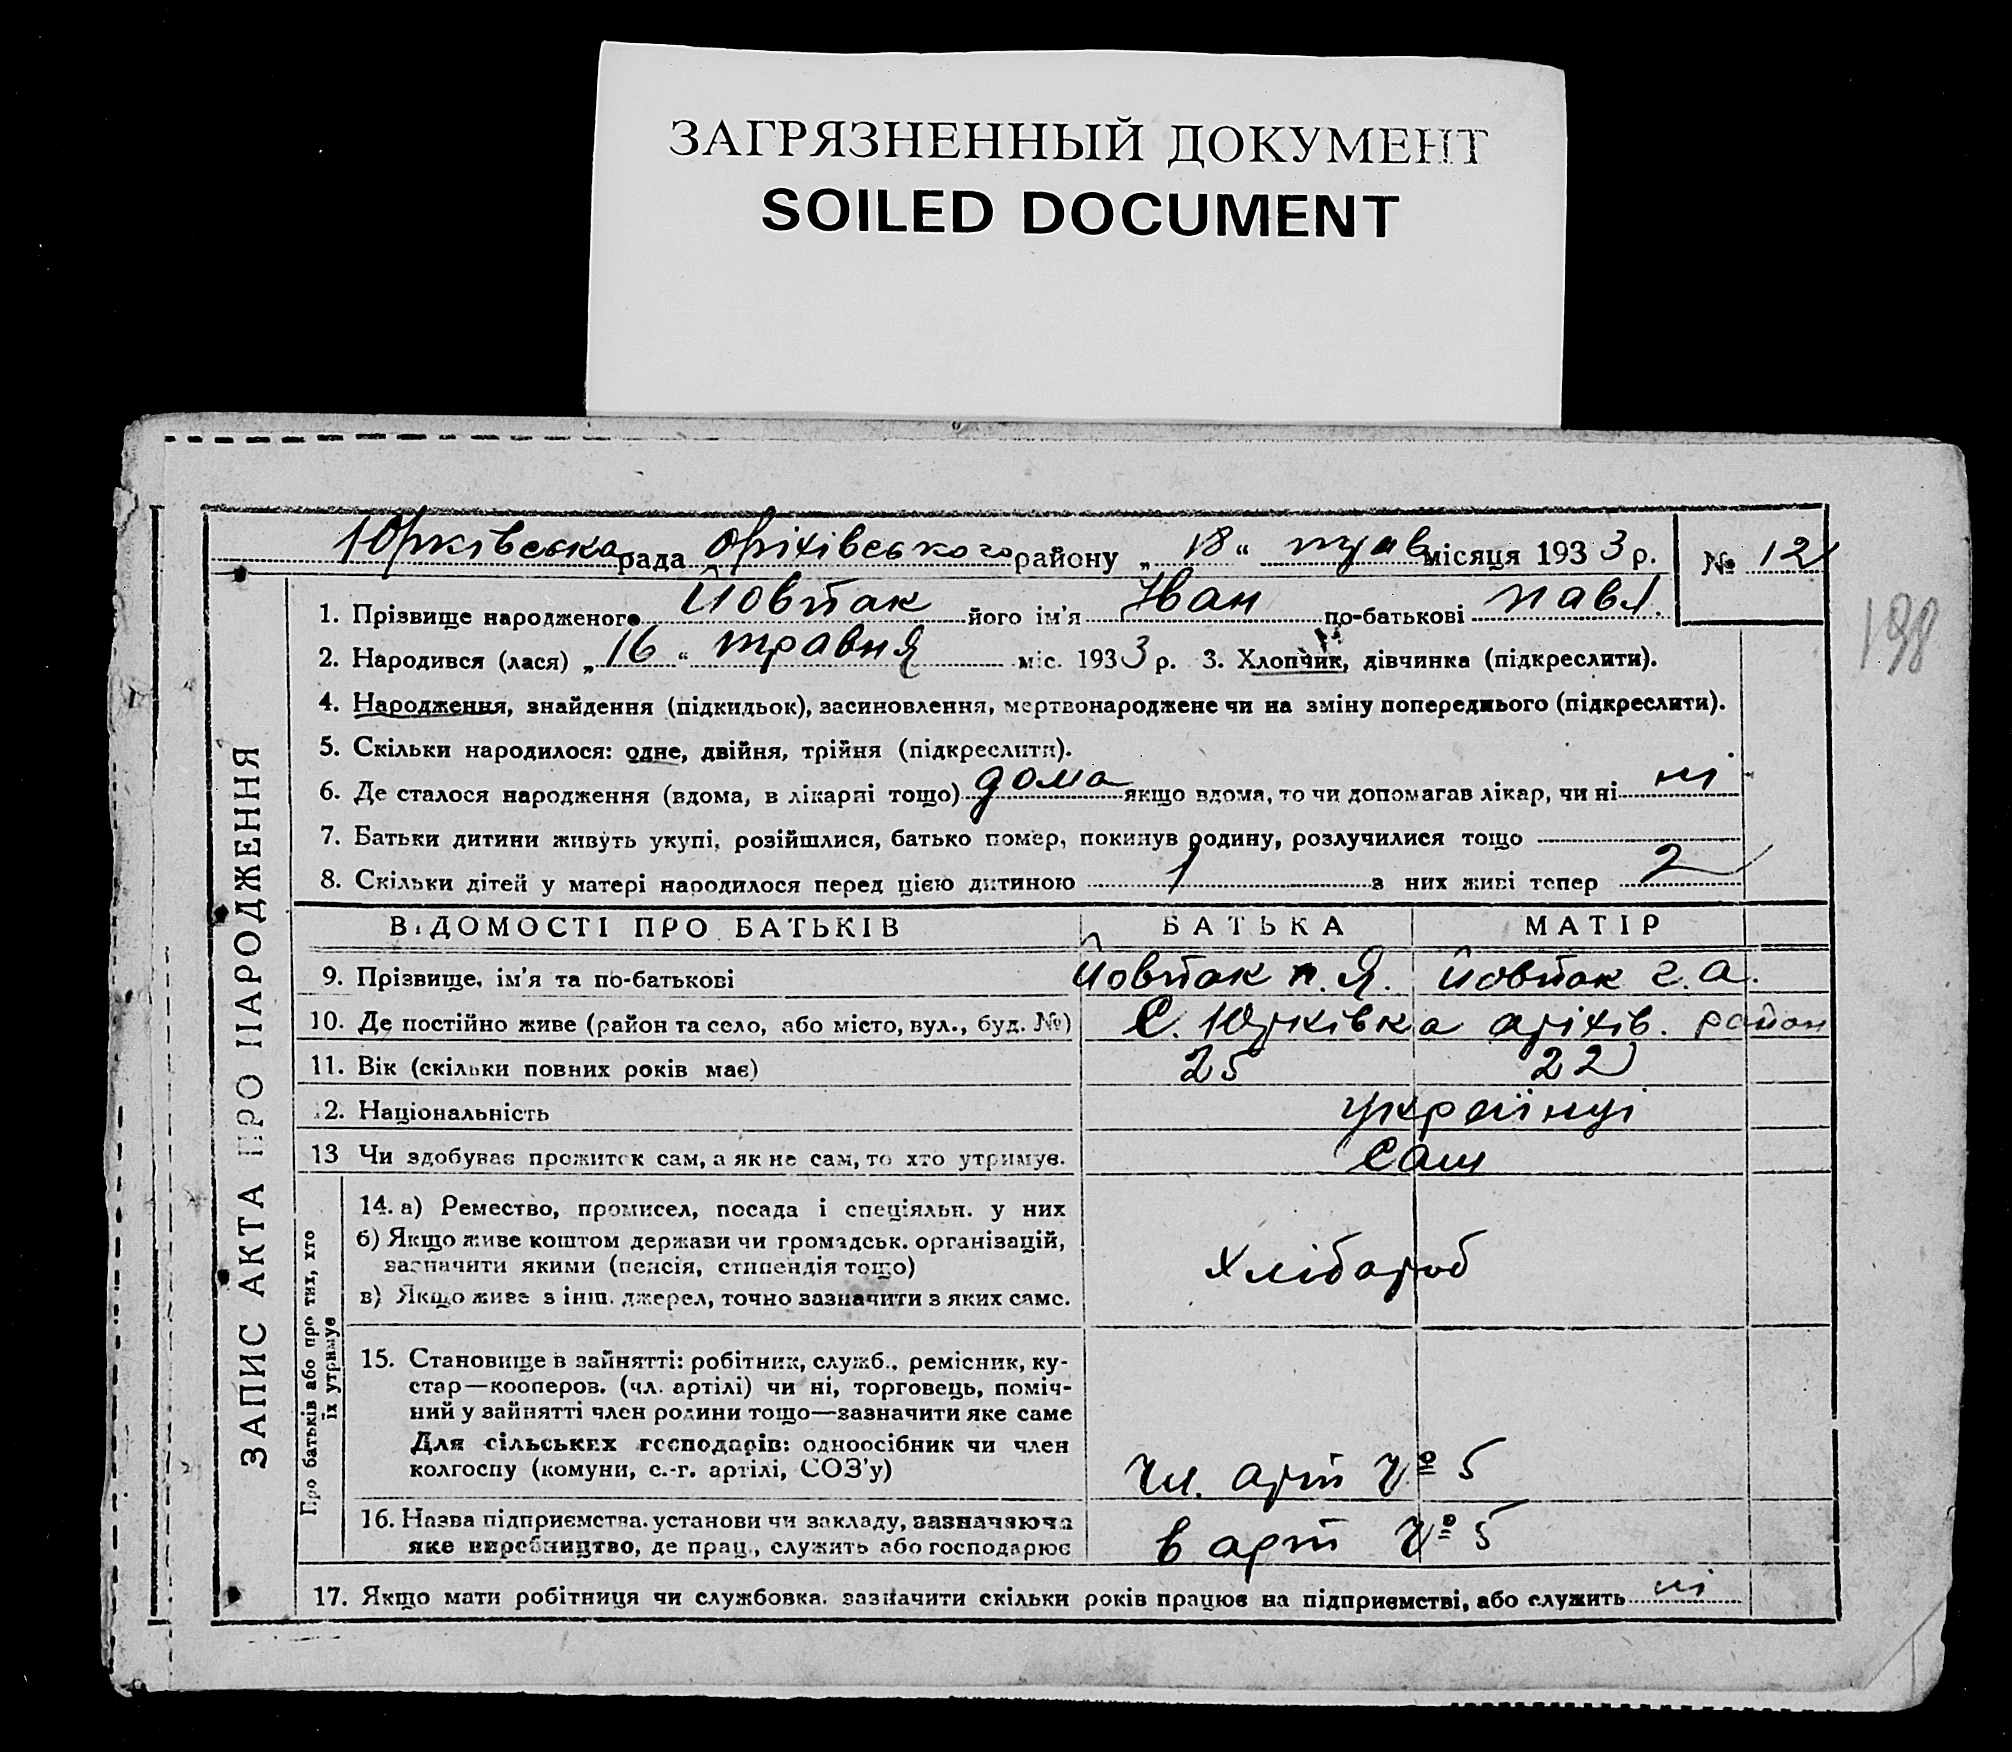 ЗАГРЯЗНЕННЫЙ ДОКУМЕНТ
SOILED DOCUMENT
Юрківська рада Оріхівського району „ 18 “ трав місяця 1933 р. № 12
1. Прізвище народженого Йовпак його ім'я Іван по-батькові павл.
198
2. Народився (лася) „ 16 “ травня міс. 1933 р. 3. Хлопчик, дівчинка (підкреслити).
4. Народження, знайдення (підкидьок), засиновлення, мертвонароджене чи на зміну попереднього (підкреслити).
5. Скільки народилося: одне, двійня, трійня (підкреслити).
6. Де сталося народження (вдома, в лікарні тощо) дома якщо вдома, то чи допомагав лікар, чи ні ні
7. Батьки дитини живуть укупі, розійшлися, батько помер, покинув родину, розлучилися тощо
8. Скільки дітей у матері народилося перед цією дитиною 1 з них живі тепер 2
ЗАПИС АКТА ПРО НАРОДЖЕННЯ
ВІДОМОСТІ ПРО БАТЬКІВ БАТЬКА МАТІР
9. Прізвище, ім'я та по-батькові Йовпак п. Я. Йовпак г. а.
10. Де постійно живе (район та село, або місто, вул., буд. №) С. Юрківка оріхів. район
11. Вік (скільки повних років має) 25 22
12. Національність українці
13 Чи здобував прожиток сам, а як не сам, то хто утримує. Сам
Про батьків або про тих, хто
їх утримує
14. а) Ремество, промисел, посада і спеціяльн. у них
б) Якщо живе коштом держави чи громадськ. організацій,
зазначити якими (пенсія, стипендія тощо) хлібароб
в) Якщо живе з інш. джерел, точно зазначити з яких саме.
15. Становище в зайнятті: робітник, служб., ремісник, ку-
стар—кооперов. (чл. артілі) чи ні, торговець, поміч-
ний у зайнятті член родини тощо—зазначити яке саме
Для сільських господарів: одноосібник чи член
колгоспу (комуни, с.-г. артілі, СОЗ'у) чл. арт № 5
16. Назва підприємства, установи чи закладу, зазначаючи
яке виробництво, де прац., служить або господарює в арт № 5
17. Якщо мати робітниця чи службовка, зазначити скільки років працює на підприємстві, або служить ні